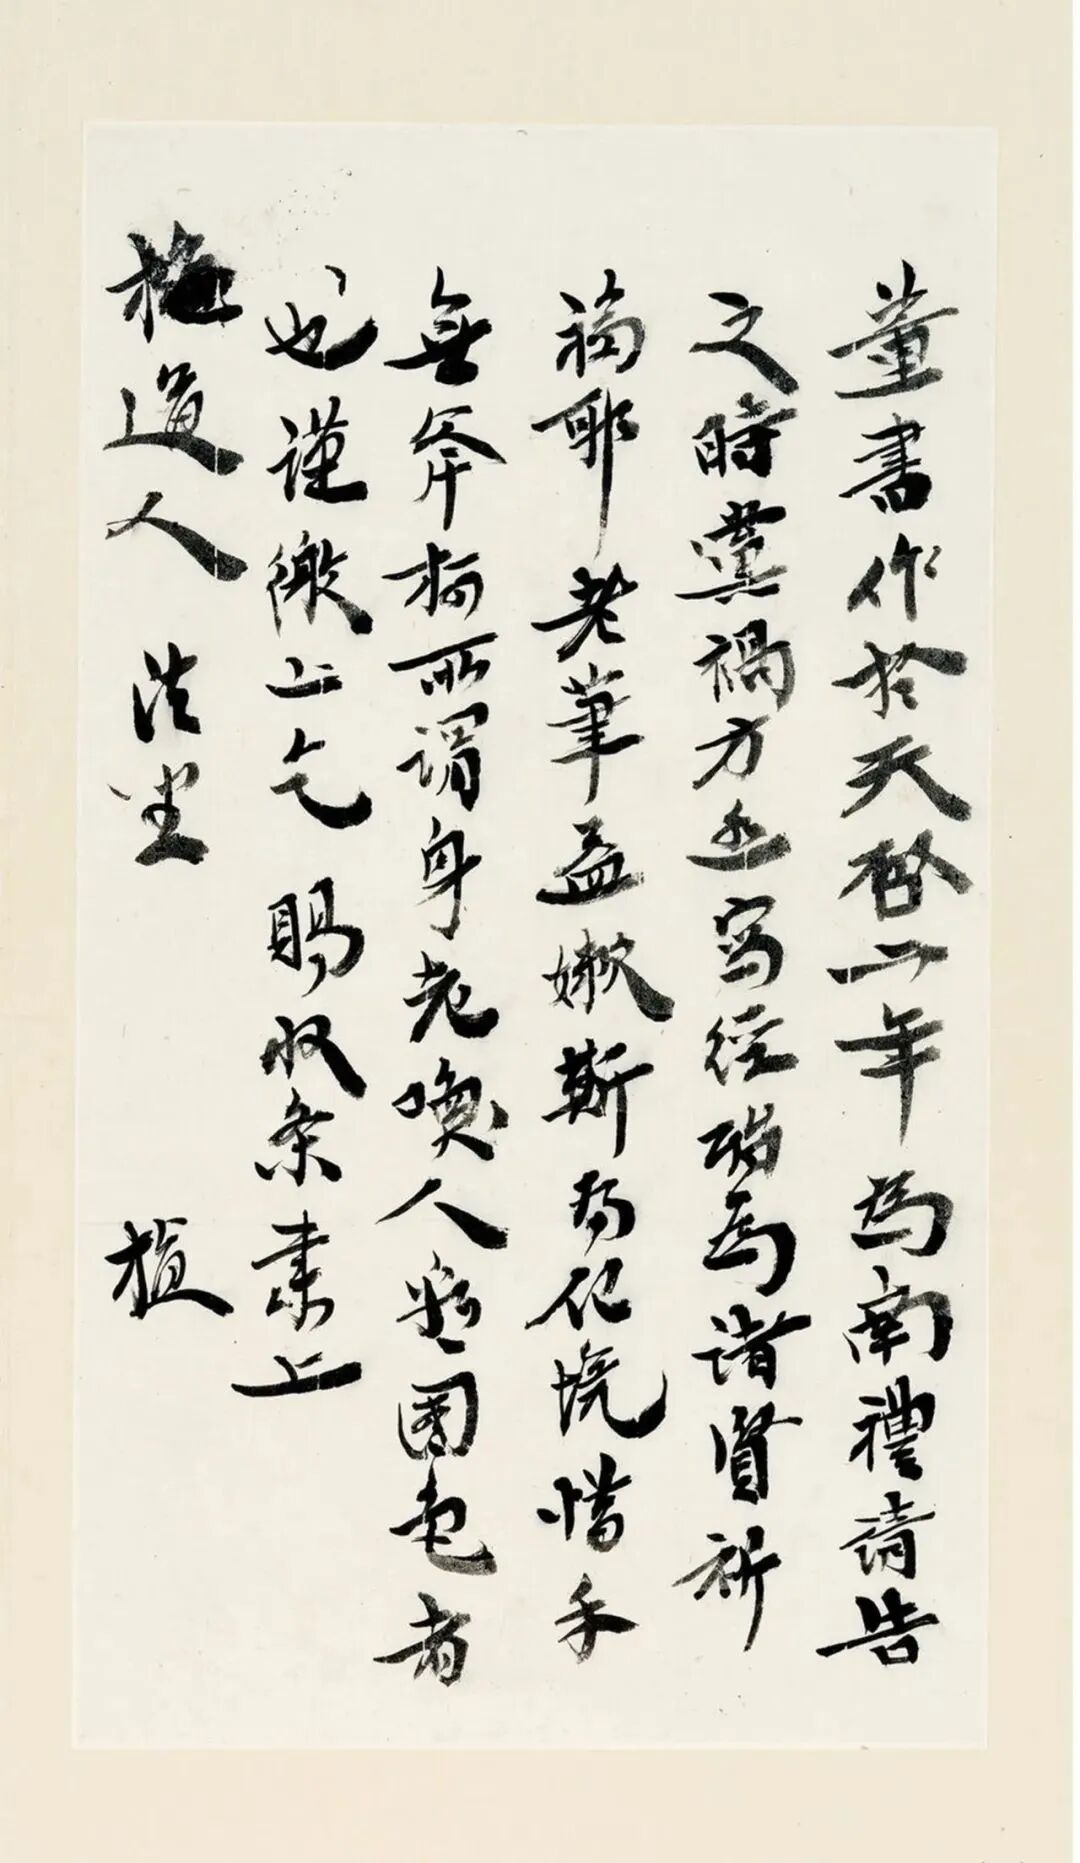 董書作於天啓二年為南禮請告
之時黨禍方亟寫經殆為諸賢祈
福耶老筆益嫩斯為化境惜手
無斧柯所謂身老喚人看國色者
也謹繳上乞賜收条肅上
梅道人法坐 植